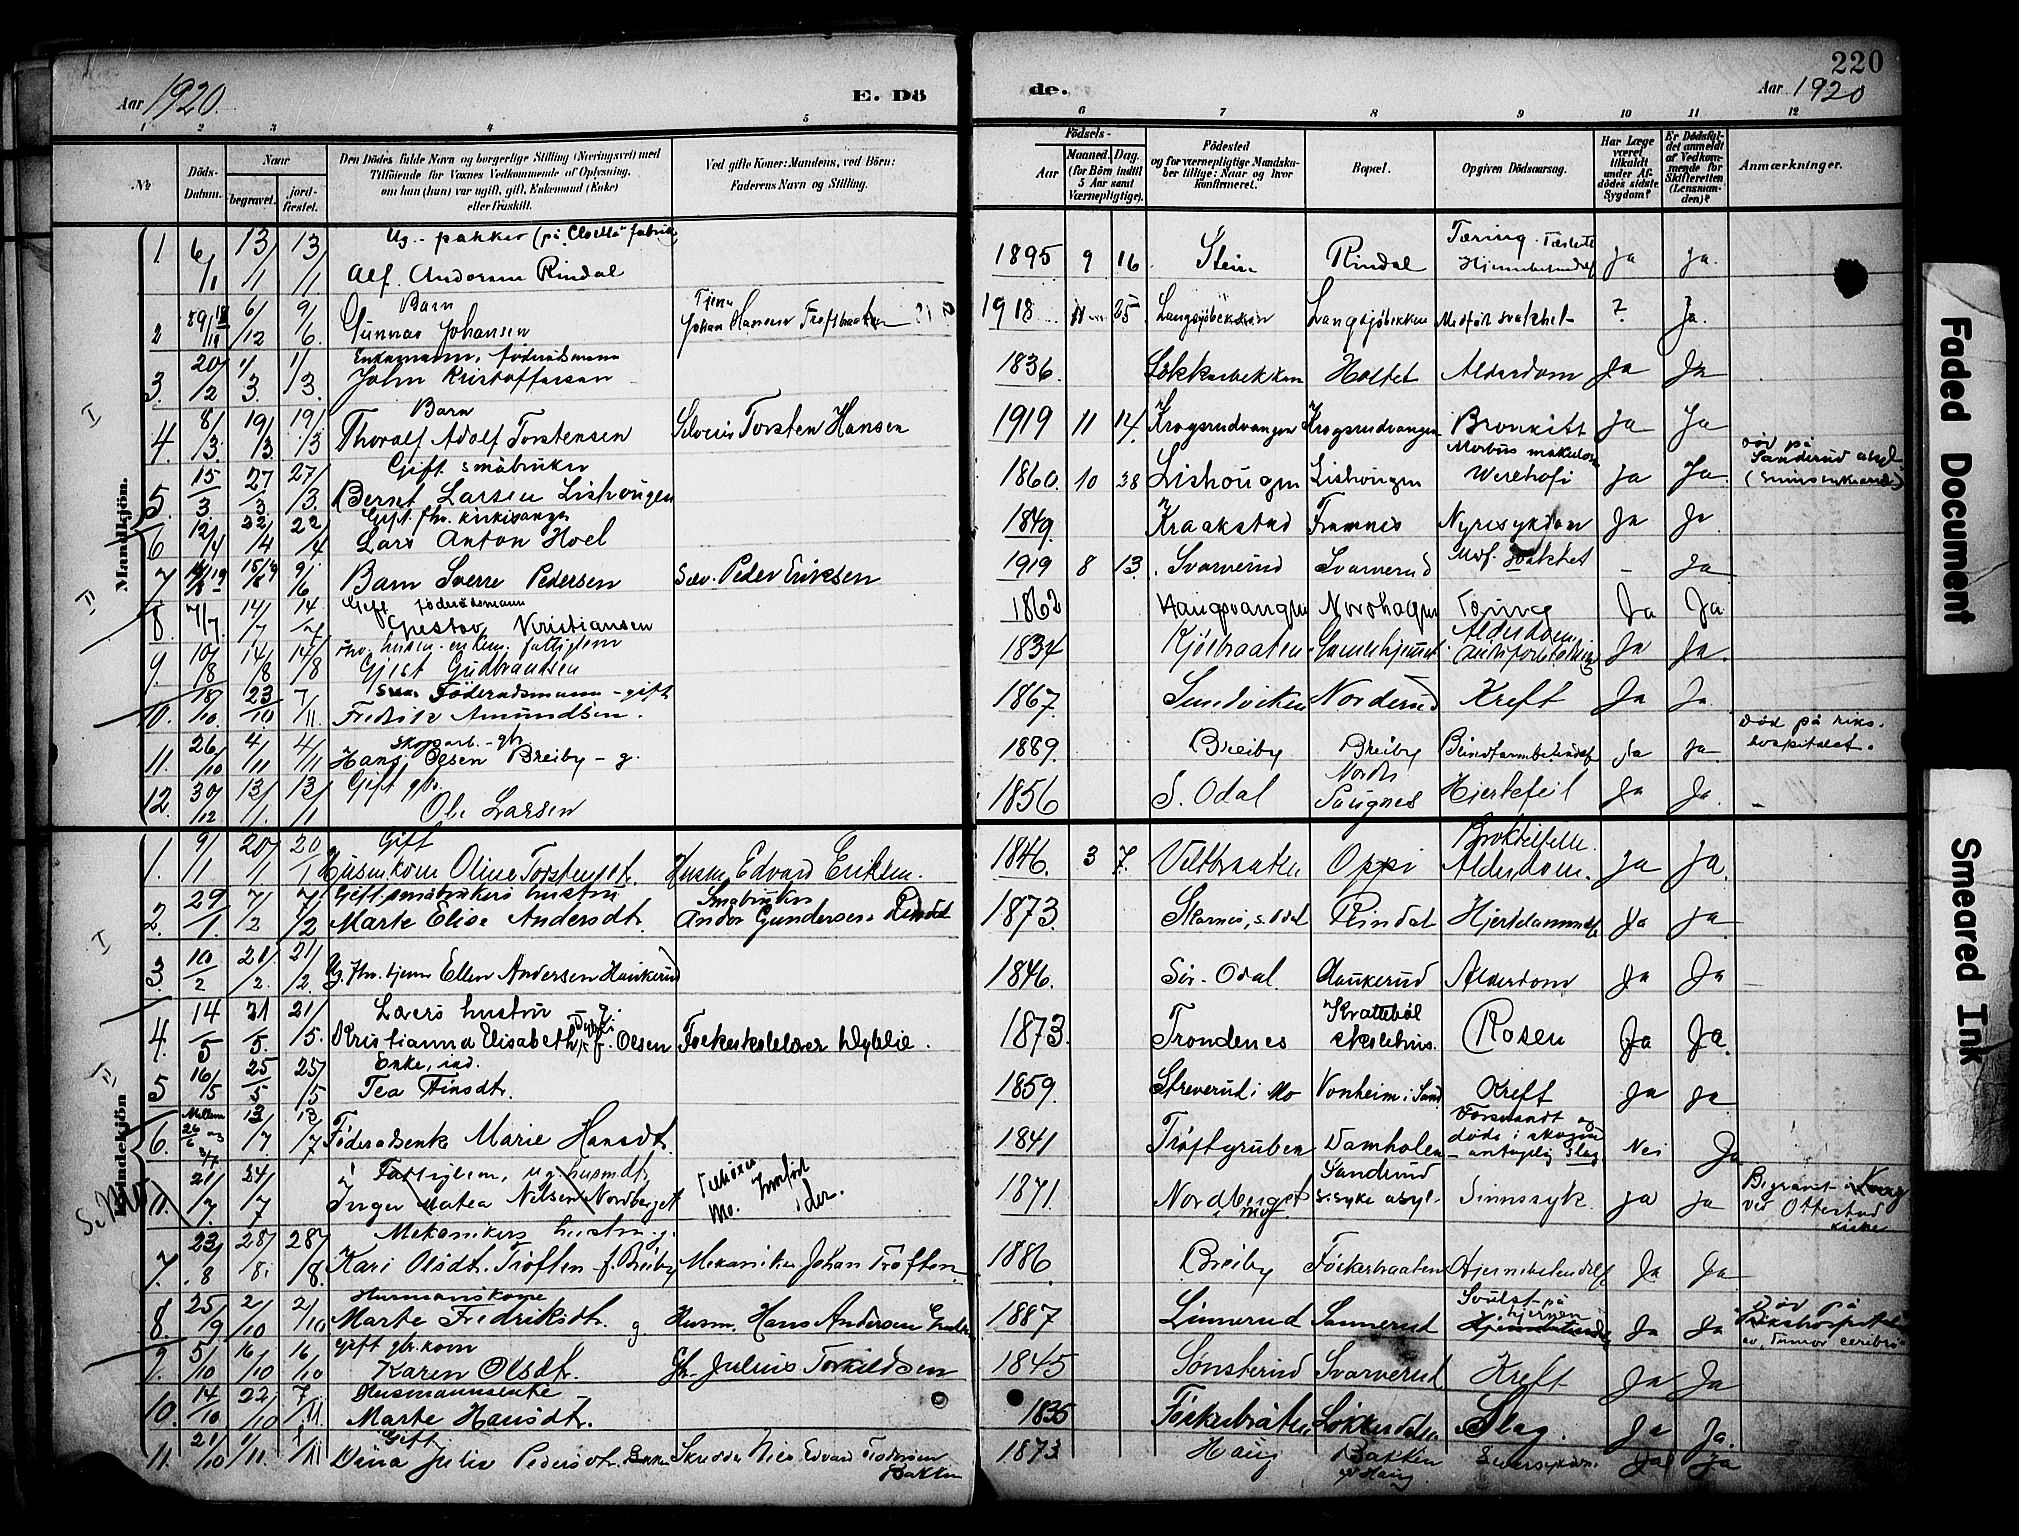 220
Aar 1920.
E. Dö
de.
Aar 1920
1 2 3 4 5 6 7 8 9 10 11 12
№
Döds-Datum.
Naar
begravet.
jordfæstet.
Den Dödes fulde Navn og borgerlige Stilling (Næringsvei) med
Tilföiende for Voxnes Vedkommende af Oplysning,
om han (hun) var ugift, gift, Enkemand (Enke)
eller fraskilt.
Ved gifte Koner: Mandens, ved Börn:
Faderens Navn og Stilling.
Födsels-
Aar
Maaned. Dag.
(for Börn indtil
5 Aar samt
Værnepligtige).
Födested
og for værnepligtige Mandska-
ber tillige: Naar og hvor
konfirmeret.
Bopæl.
Opgiven Dödsaarsag.
Har Læge
været
tilkaldt
under Af-
dödes sidste
Sygdom?
Er Dödsfal-
det anmeldt
af Vedkom-
mende for
Skifteretten
(Lensman-
den)?
Anmærkninger.
Mandkjön.
1 6/1 13/1 13/1 Ug. pakker (på fabrik
Alf. Andersen Rindal 1895 9 16 Stein Rindal Tæring. Ja Ja.
2 6/12 9/6 Barn
Gunnar Johansen Johan Hansen 1918 25 Langsjöbekken Langsjöbekken Medfödt svakhet ? Ja.
3. 20/2 1/3. 1/3. Enkemann, föderådsmann
John Kristoffersen 1836 Holtet Alderdom Ja Ja
4. 8/3. 19/3. 19/3 Barn
Thoralf Adolf Torstensen Torsten Hansen 1919 11 14 Krogsrudvangen Krogsrudvangen Bronkitt Ja Ja
5. 15/3. 27/3. 27/3. Gift småbruker
Bernt Larsen Lishougen 1860 10 28 Lishougen Lishougen Morbus Werlhofi Ja Ja. Död på
Sanderud asyl
6 12/4 22/4 22/4 Gift fhv.
Lars Anton Hoel 1849. Kraakstad Framnes Nyresykdom Ja Ja
7 9/6 Barn Sverre Pedersen Peder Eriksen 1919 8 13. Svarverud Svarverud Medf. svakhet - Ja
8. 7/7. 14/7 14/7 Gift föderådsmann
Gustav Kristiansen 1862 Haugsvangen Nordhagen Tæring Ja Ja
9. 10/8 14/8 14/8 fhv. husm. enkem. fattiglem
Gjest Gudbrandsen 1834 Kjölbraaten Gamlehjemmet Alderdom Ja Ja.
10. 18/10 23/10 7/11. Föderaadsmann - gift
Fredrik Amundsen. 1867. Sundviken Norderud Kreft Ja Ja.
11. 26/10 4/11 4/11 skogarb. - gbr.
Hans Olsen Breiby - g. 1889. Breiby Breiby Blindtarmbetendelse Ja Ja. Död på riks-
hospitalet.
12. 30/12 13/1. 13/1 Gift gbr.
Ole Larsen 1856 S. Odal Nordre
Hjertefeil Ja Ja. -
Kvindekjön
1. 9/1 20/1 20/1 Gift
Husmkone Oline Torstensdt. Husm. Edvard Eriksen. 1846. 3 7. Veltbraaten Oppi
Alderdom. Ja Ja.
2. 29/1. 7/2 7/2 Gift småbrukers hustru
Marte Elise Andersdt. Småbruker
Andor Gundersen Rindal 1873. Skarnes, S. Odal Rindal Ja Ja
3. 10/2 21/2. 21/2. Ug. fhv. tjener Ellen Andersen Haukerud 1846. Sör-Odal. Haukerud Alderdom Ja Ja
4. 14/5 21/5. 21/5. Lærers hustru
Kristianna Elisabeth f. Olsen Folkeskolelærer Dyblie. 1873. Trondenes Skrattebøl
skolehus. Rosen Ja Ja.
5 16/5 25/5 25/5 Enke, ind.
Tea Finsdt. 1859. Streverud i Mo Vonheim i Sand Kreft Ja Ja
6. Mellem
26/6 og 3/7 13/7 13/7 Föderadsenke Marie Hansdt. 1841 Trøftgruben Damholen Forsvandt og
döde i skogen
- antagelig slag. Nei Ja
S. Mo 11. 21/7. 24/7 Fattiglem, ug. husmdt.
Inger Matea Nilsen Nordberget Tilhører
Mo. Innført
der. 1871. Nordberget
i Mo Sanderud
s.syke asyl. Sinnssyk. Ja Ja Begravet i
ved Ottestad
kirke
7. 23/8 28/8. 28/8. Mekanikers hustru - g.
Kari Olsdt. Trøften f. Breiby Mekaniker Johan Trøften 1886. Breiby Föskerbraaten Hjernebetendelse Ja Ja
8. 25/9 2/10 2/10 Husmannskone
Marte Fredriksdt. g. Husm. Hans Andersen 1887 Linnerud Sannerud Svulst på
hjernen Ja Ja Död på
Rikshospitalet
av Tumor cerebri
9. 5/10 16/10 16/10 Gift gbr.kone
Karen Olsdt. Gbr. Julius Torkildsen 1845 Sønsterud Svarverud Kreft Ja Ja
10. 14/10 22/10 7/11 Husmannsenke
Marte Hansdt. 1835 Föskerbråten Løkkerdalen Slag. Ja Ja.
11. 21/10 1/11. 8/11 Gift
Dina Julie Pedersdt. Skredder Nils Edvard
Bakken 1873 Haug Bakken
v/ Haug Ja Ja
I
II
I
II
Faded Document
Smeared Ink